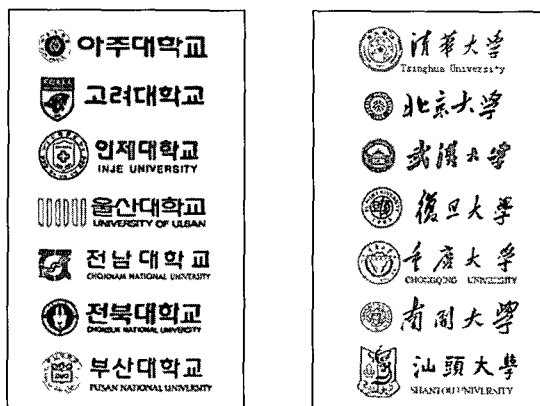 아주대학교
고려대학교
인제대학교
INJE UNIVERSITY
울산대학교
UNIVERSITY OF ULSAN
전남대학교
CHONNAM NATIONAL UNIVERSITY
전북대학교
CHONBUK NATIONAL UNIVERSITY
부산대학교
PUSAN NATIONAL UNIVERSITY
清華大学
Tsinghua University
北京大学
武漢大学
復旦大學
重慶大学
CHONGQING UNIVERSITY
南開大學
汕頭大學
SHANTOU UNIVERSITY